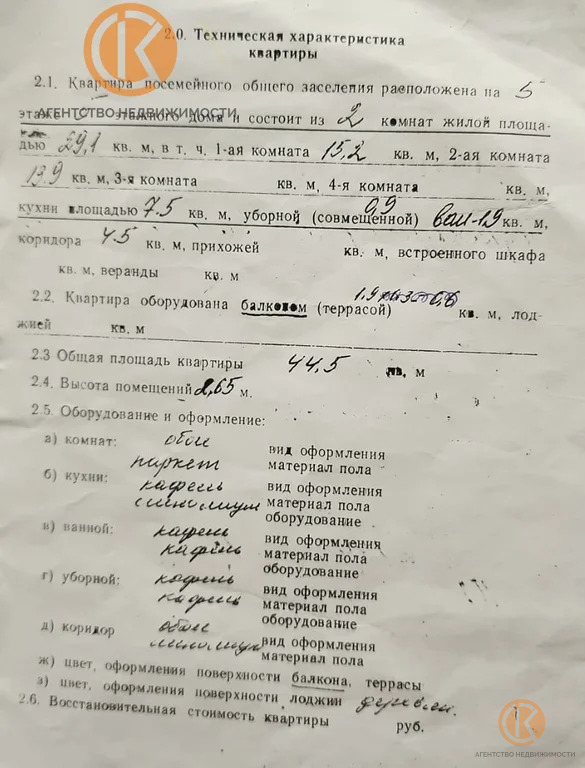 2.0. Техническая характеристика
квартиры
2.1. Квартира посемейного общего заселения расположена на 5
АГЕНТСТВО НЕДВИЖИМОСТИ
этаже этажного дома и состоит из 2 комнат жилой площа-
дью 29,1 кв. м, в т. ч. 1-ая комната 15,2 кв. м, 2-ая комната
13.9 кв. м, 3-я комната кв. м, 4-я комната кв. м,
кухни площадью 7.5 кв. м, уборной (совмещенной) 0,9 ван-1.9 кв. м,
коридора 4.5 кв. м, прихожей кв. м, встроенного шкафа
кв. м, веранды кв. м
2.2. Квартира оборудована балконом (террасой) кв. м, лод-
жией кв. м
2.3 Общая площадь квартиры 44,5 кв. м
2.4. Высота помещений 2,65 м.
2.5. Оборудование и оформление:
а) комнат: обои вид оформления
паркет материал пола
б) кухни: кафель вид оформления
линолиум материал пола
оборудование
в) ванной: кафель вид оформления
кафель материал пола
оборудование
г) уборной: кафель вид оформления
кафель материал пола
оборудование
д) коридор обои вид оформления
линолиум материал пола
ж) цвет, оформления поверхности балкона, террасы
з) цвет, оформления поверхности лоджии
2.6. Восстановительная стоимость квартиры руб.
АГЕНТСТВО НЕДВИЖИМОСТИ